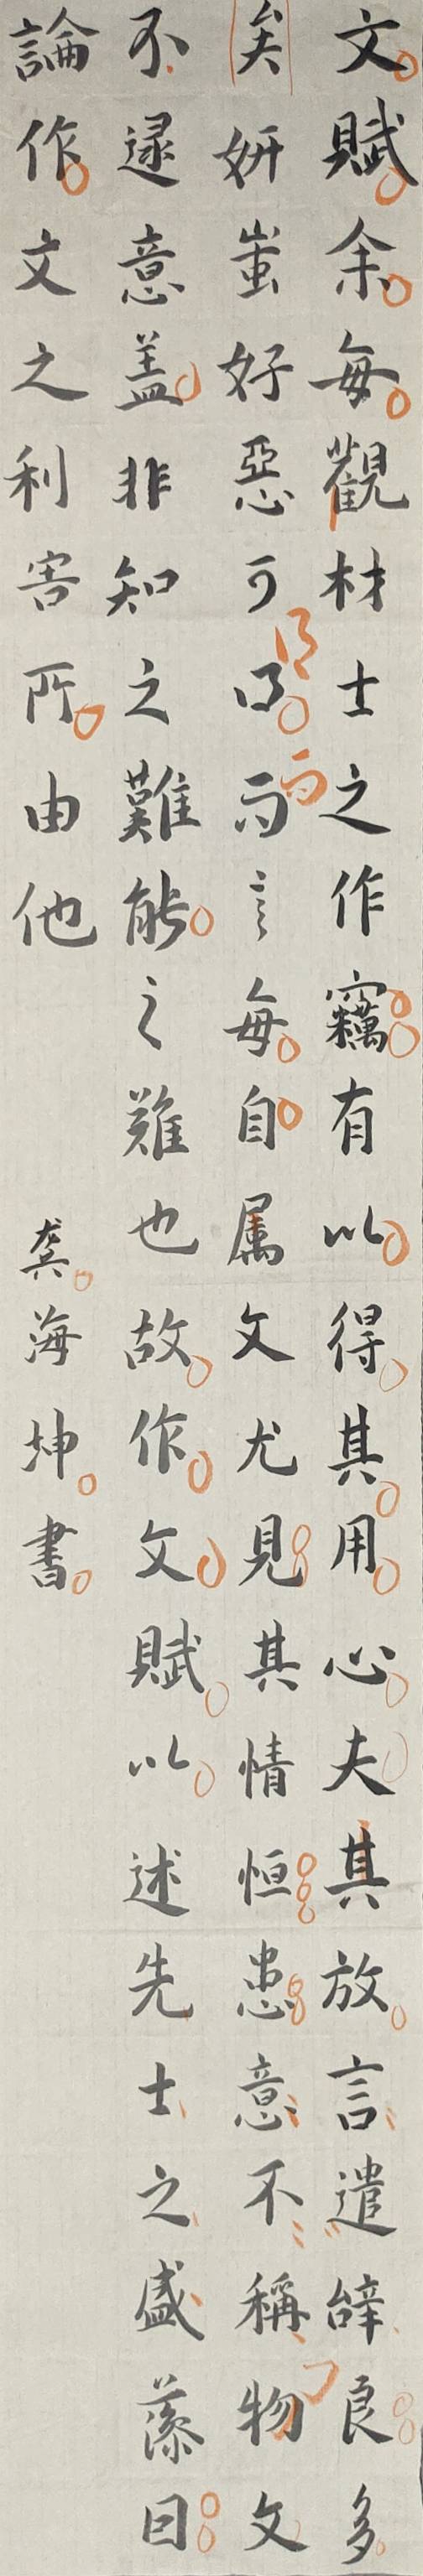 文賦余每觀材士之作竊有以得其用心夫其放言遣辤良多
矣妍蚩好惡可得而言每自属文尤見其情恒患意不稱物文
不逮意盖非知之難能之難也故作文賦以述先士之盛藻曰
論作文之利害所由他
龚海坤書